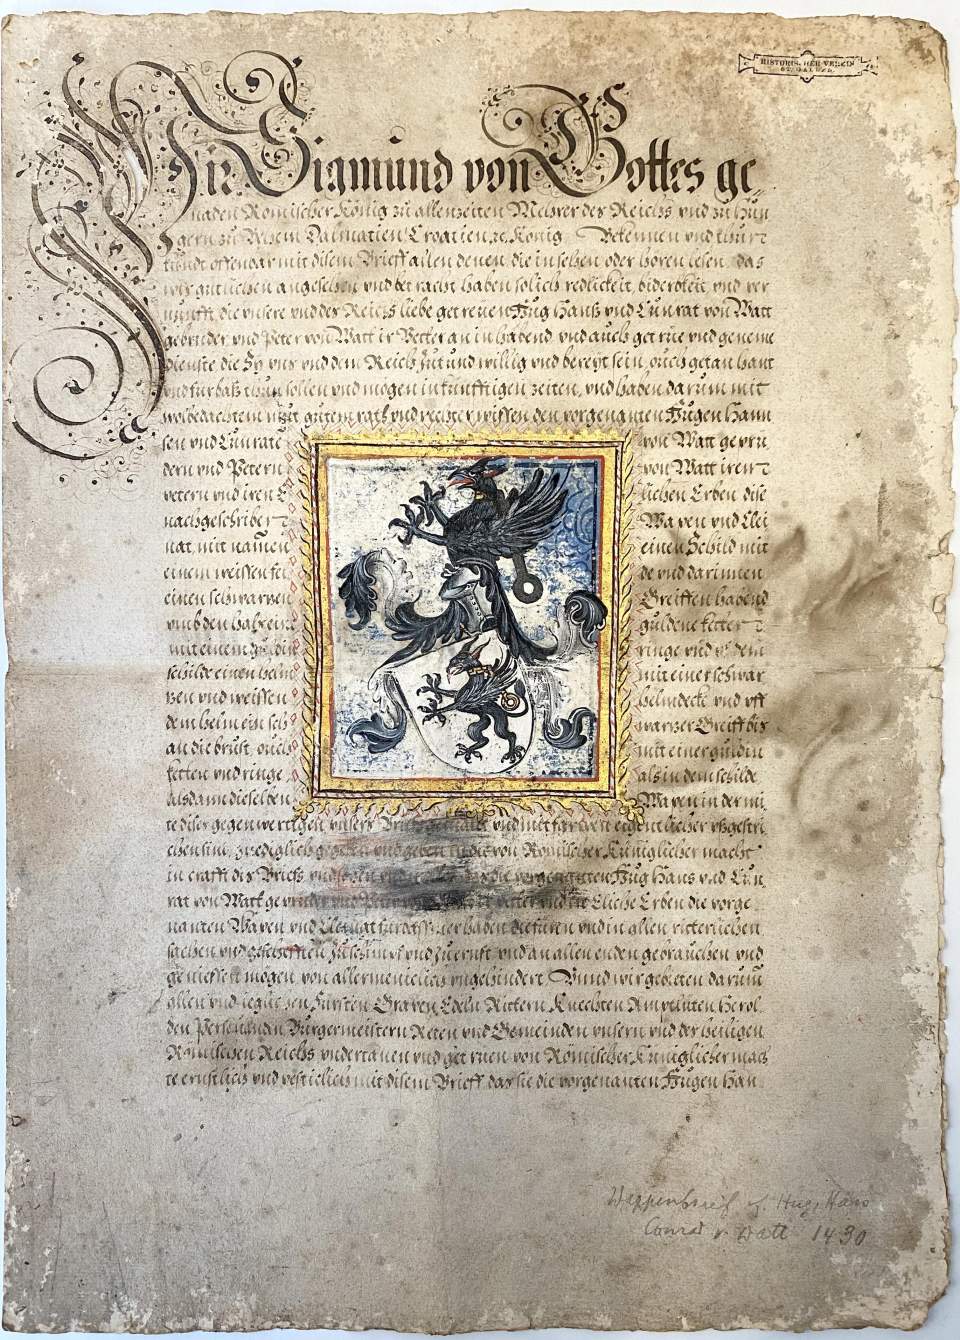 HISTORISCHER VEREIN
ST. GALLEN.
Wir Sigmund von Gottes ge
naden Römischer König zu allenzeiten Mehrer des Reichs vnd zu Hun
gern zu Behem Dalmatien Croatien ꝛc König Bekennen vnd thun
kundt offenbar mit disem Brieff allen denen die in sehen oder hören lesen das
wir gutlichen angesehen vnd betracht haben solich redlickeit, biderbkeit vnd ver
nunfft, die vnsere vnd des Reichs liebe getreuen Hug Hanß vnd Cunrat von Watt
gebruder vnd Peter von Watt ir Vetter an in habend vnd auch getrue vnd geneme
dienste die Sy vns vnd dem Reich zut vnd willig vnd bereyt sein, ouch getan hant
vnd fürbaß thun sollen vnd mögen in künfftigen zeiten, vnd haben darum mit
wolbedachtem mut gutem rath vnd rechter wissen den vorgenanten Hugen Hann
sen vnd Cunrate von Watt gebru
dern vnd Petern von Watt iren
vetern vnd iren E lichen Erben dise
nachgeschriben Wapen vnd Clei
nat, mit namen einen Schild mit
einem weissen fel de vnd darinnen
einen schwarzen Greiffen habend
vmb den hals eine guldene ketten
mit einem guldin ringe vnd vf dem
schilde einen helm mit einer schwar
zen vnd weissen helmdecke vnd vff
dem helm ein sch warzer Greiff bis
an die brust, ouch mit einer guldin
ketten vnd ringe als in dem schilde
Als dann dieselben Wapen in der mi
te diser gegenwertigen vnsers Brieffs gemalet vnd mit farwen eigentlicher vßgestri
chen sint, gnediglich gegeben vnd geben in dis von Römischer Küniglicher macht
in crafft dis Brieffs vnd das die vorgenanten Hug Hans vnd Cun
rat von Watt gebruder vnd Peter vetter vnd ire Eliche Erben die vorge
nanten Wapen vnd Cleinat fürbasmer haben die füren vnd in allen ritterlichen
sachen vnd geschefften zu schimpf vnd zu ernst vnd an allen enden gebrauchen vnd
geniessen mögen von allermenielich vngehindert, Vnnd wir gebieten darum
allen vnd iegliechen Fürsten Graven Edeln Rittern Knechten Amptlüten Herol
den Persefanden Bürgermeistern Reten vnd Gemeinden vnsern vnd des heiligen
Römischen Reichs vndertanen vnd getruen von Römischer Küniglicher mach
te ernstlich vnd vesticlich mit disem Brieff das sie die vorgenanten Hugen Han
Wappenbrief f. Hug, Hans
Conrad v. Watt 1430